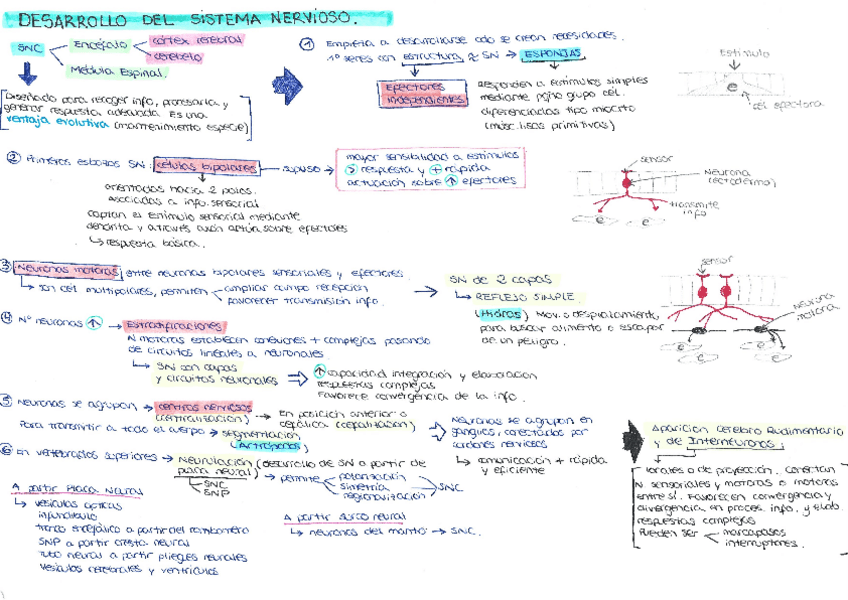 DESARROLLO DEL SISTEMA NERVIOSO.
SNC
Encéfalo
córtex cerebral
cerebelo
Médula Espinal.
Diseñado para recoger info, procesarla y
generar respuesta adecuada. Es una
ventaja evolutiva (mantenimiento especie)
① Empieza a desarrollarse cdo se crean necesidades.
1º seres con estructura ≈ SN → ESPONJAS
Efectores
independientes
Responden a estímulos simples
mediante pqño grupo cél.
diferenciadas tipo miocito
(músc. lisas primitivas)
Estímulo
e
cél efectora
② Primeros esbozos SN: células bipolares → supuso →
mayor sensibilidad a estímulos
> respuesta y + rápida
actuación sobre ↑ efectores
orientadas hacia 2 polos.
asociadas a info. sensorial
captan el estímulo sensorial mediante
dendrita y a través axón actúa sobre efectores
↳ respuesta básica.
sensor
Neurona
(ectodermo)
transmite
info
e e
③ Neuronas motoras entre neuronas bipolares sensoriales y efectores.
↳ son cél multipolares, permiten
ampliar campo recepción
favorecer transmisión info.
→ SN de 2 capas
↳ REFLEJO SIMPLE.
(Hidras) Mov. o desplazamiento
para buscar alimento o escapar
de un peligro.
sensor
Neurona
motora
e e
e e
④ Nº neuronas ↑ → Estratificaciones
N motoras establecen conexiones + complejas pasando
de circuitos lineales a neuronales.
↳ SN con capas
y circuitos neuronales
⇒ ↑ capacidad integración y elaboración
respuestas complejas
Favorece convergencia de la info.
⑤ Neuronas se agrupan → centros nerviosos
(centralización) → En posición anterior o
cefálica (cefalización)
Para transmitir a todo el cuerpo → segmentación
(Artrópodos)
⇒ Neuronas se agrupan en
ganglios, conectados por
cordones nerviosos
↳ comunicación + rápida
y eficiente
Aparición cerebro Rudimentario
y de Interneuronas.
Locales o de proyección. Conectan
N sensoriales y motoras o motoras
entre sí. Favorecen convergencia y
divergencia en proces. info. y elab.
respuestas complejas
Pueden ser
marcapasos
interruptores.
⑥ En vertebrados superiores → Neurulación (desarrollo de SN a partir de
placa neural) → permite
polarización
simetría
regionalización
SNC
SNC
SNP
A partir Placa Neural
↳ vesículas ópticas
infundíbulo
tronco encefálico a partir del rombómero
SNP a partir cresta neural
Tubo neural a partir pliegues neurales
Vesículas cerebrales y ventrículos
A partir surco neural
↳ neuronas del manto → SNC.